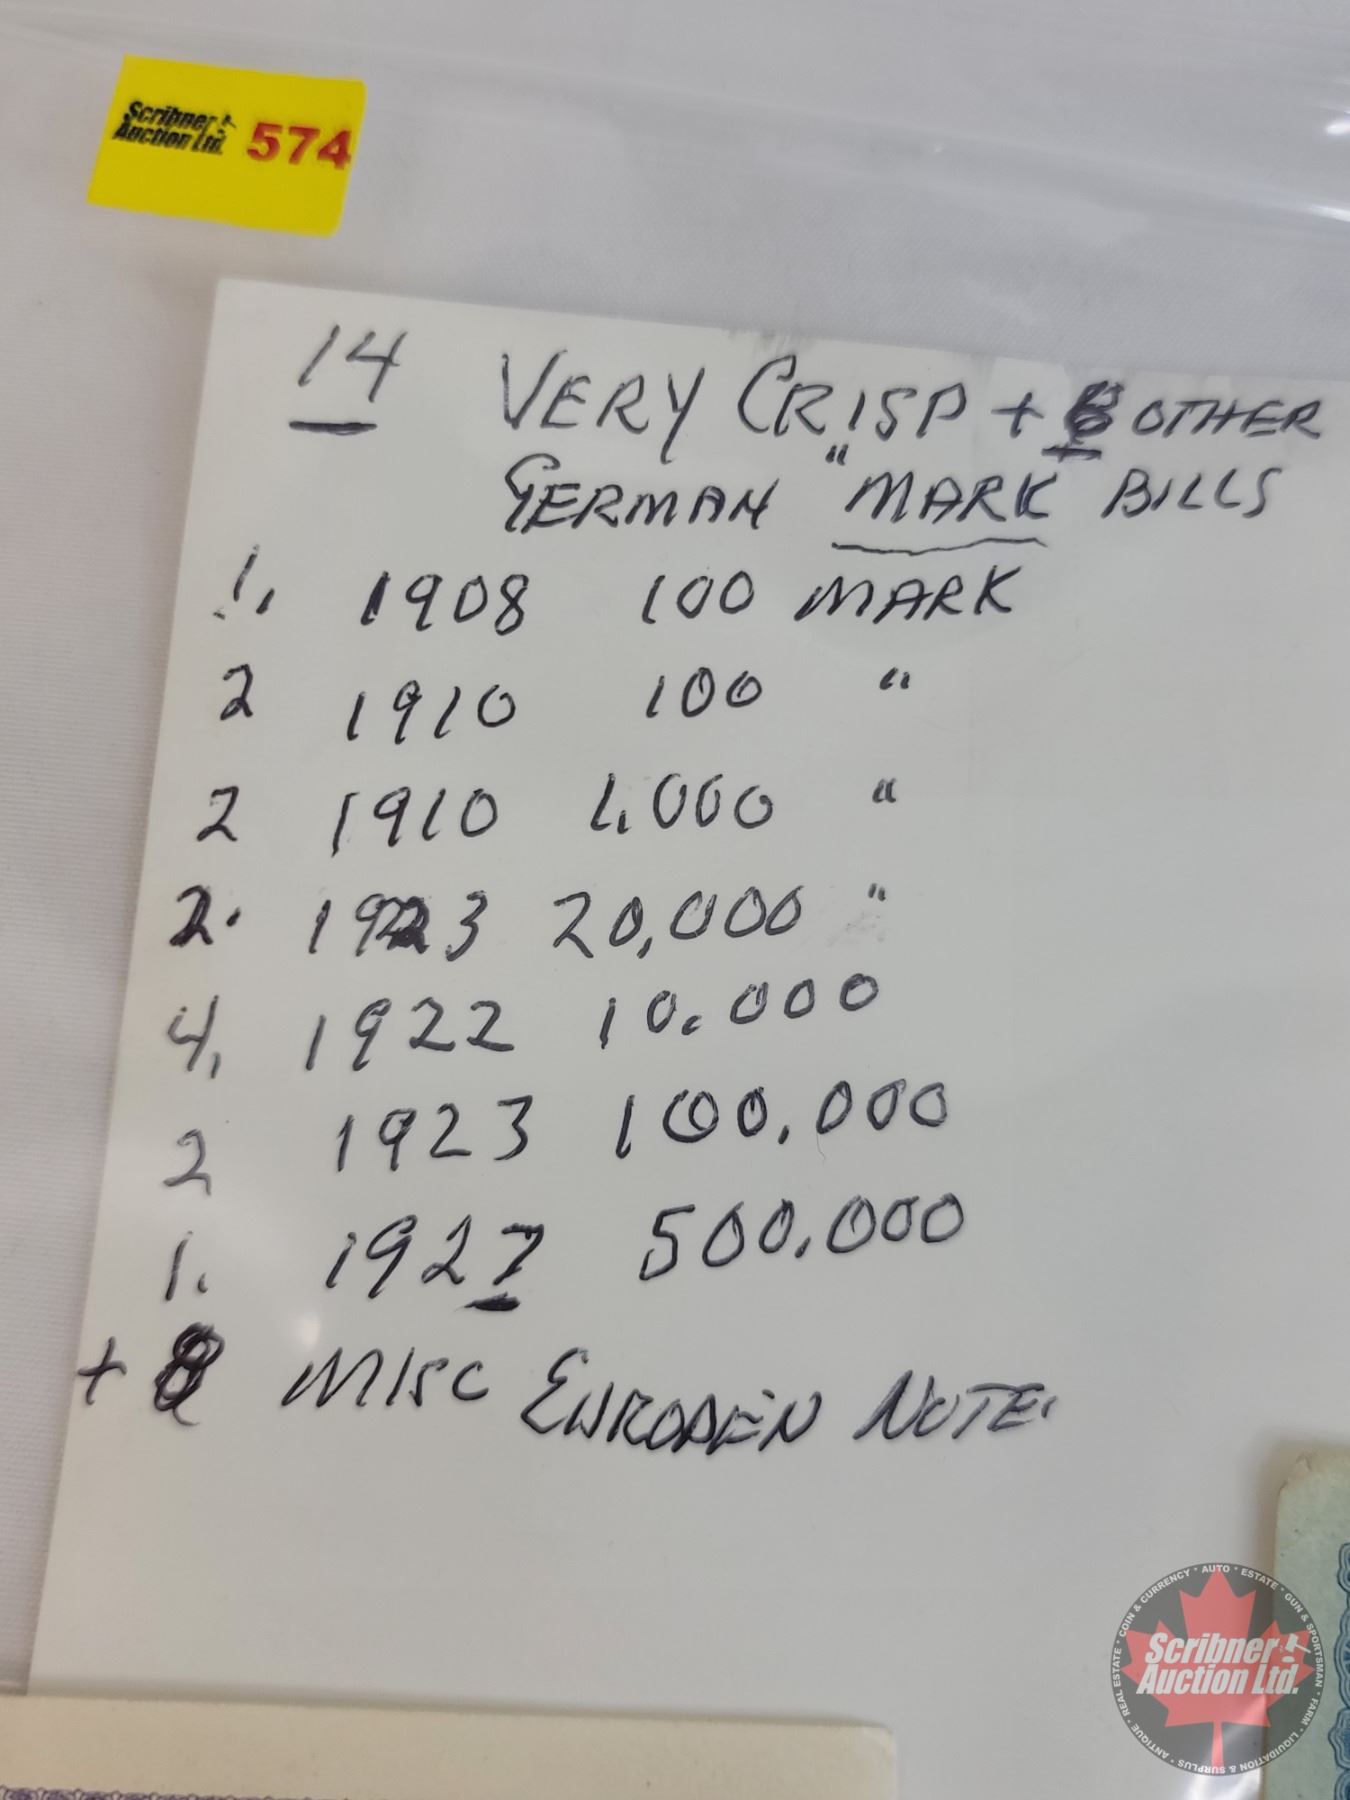 Scribner
Auction Ltd. 574
14 VERY CRISP + 8 OTHER
GERMAN "MARK" BILLS
1. 1908 100 MARK
2 1910 100 "
2 1910 1,000 "
2. 1923 20,000 "
4. 1922 10.000
2 1923 100,000
1. 1927 500,000
+ 8 MISC EUROPEN NOTE.
COIN & CURRENCY • AUTO • ESTATE • GUN & SPORTSMAN • FARM • LIQUIDATION & SURPLUS • ANTIQUE • REAL ESTATE •
Scribner
Auction Ltd.